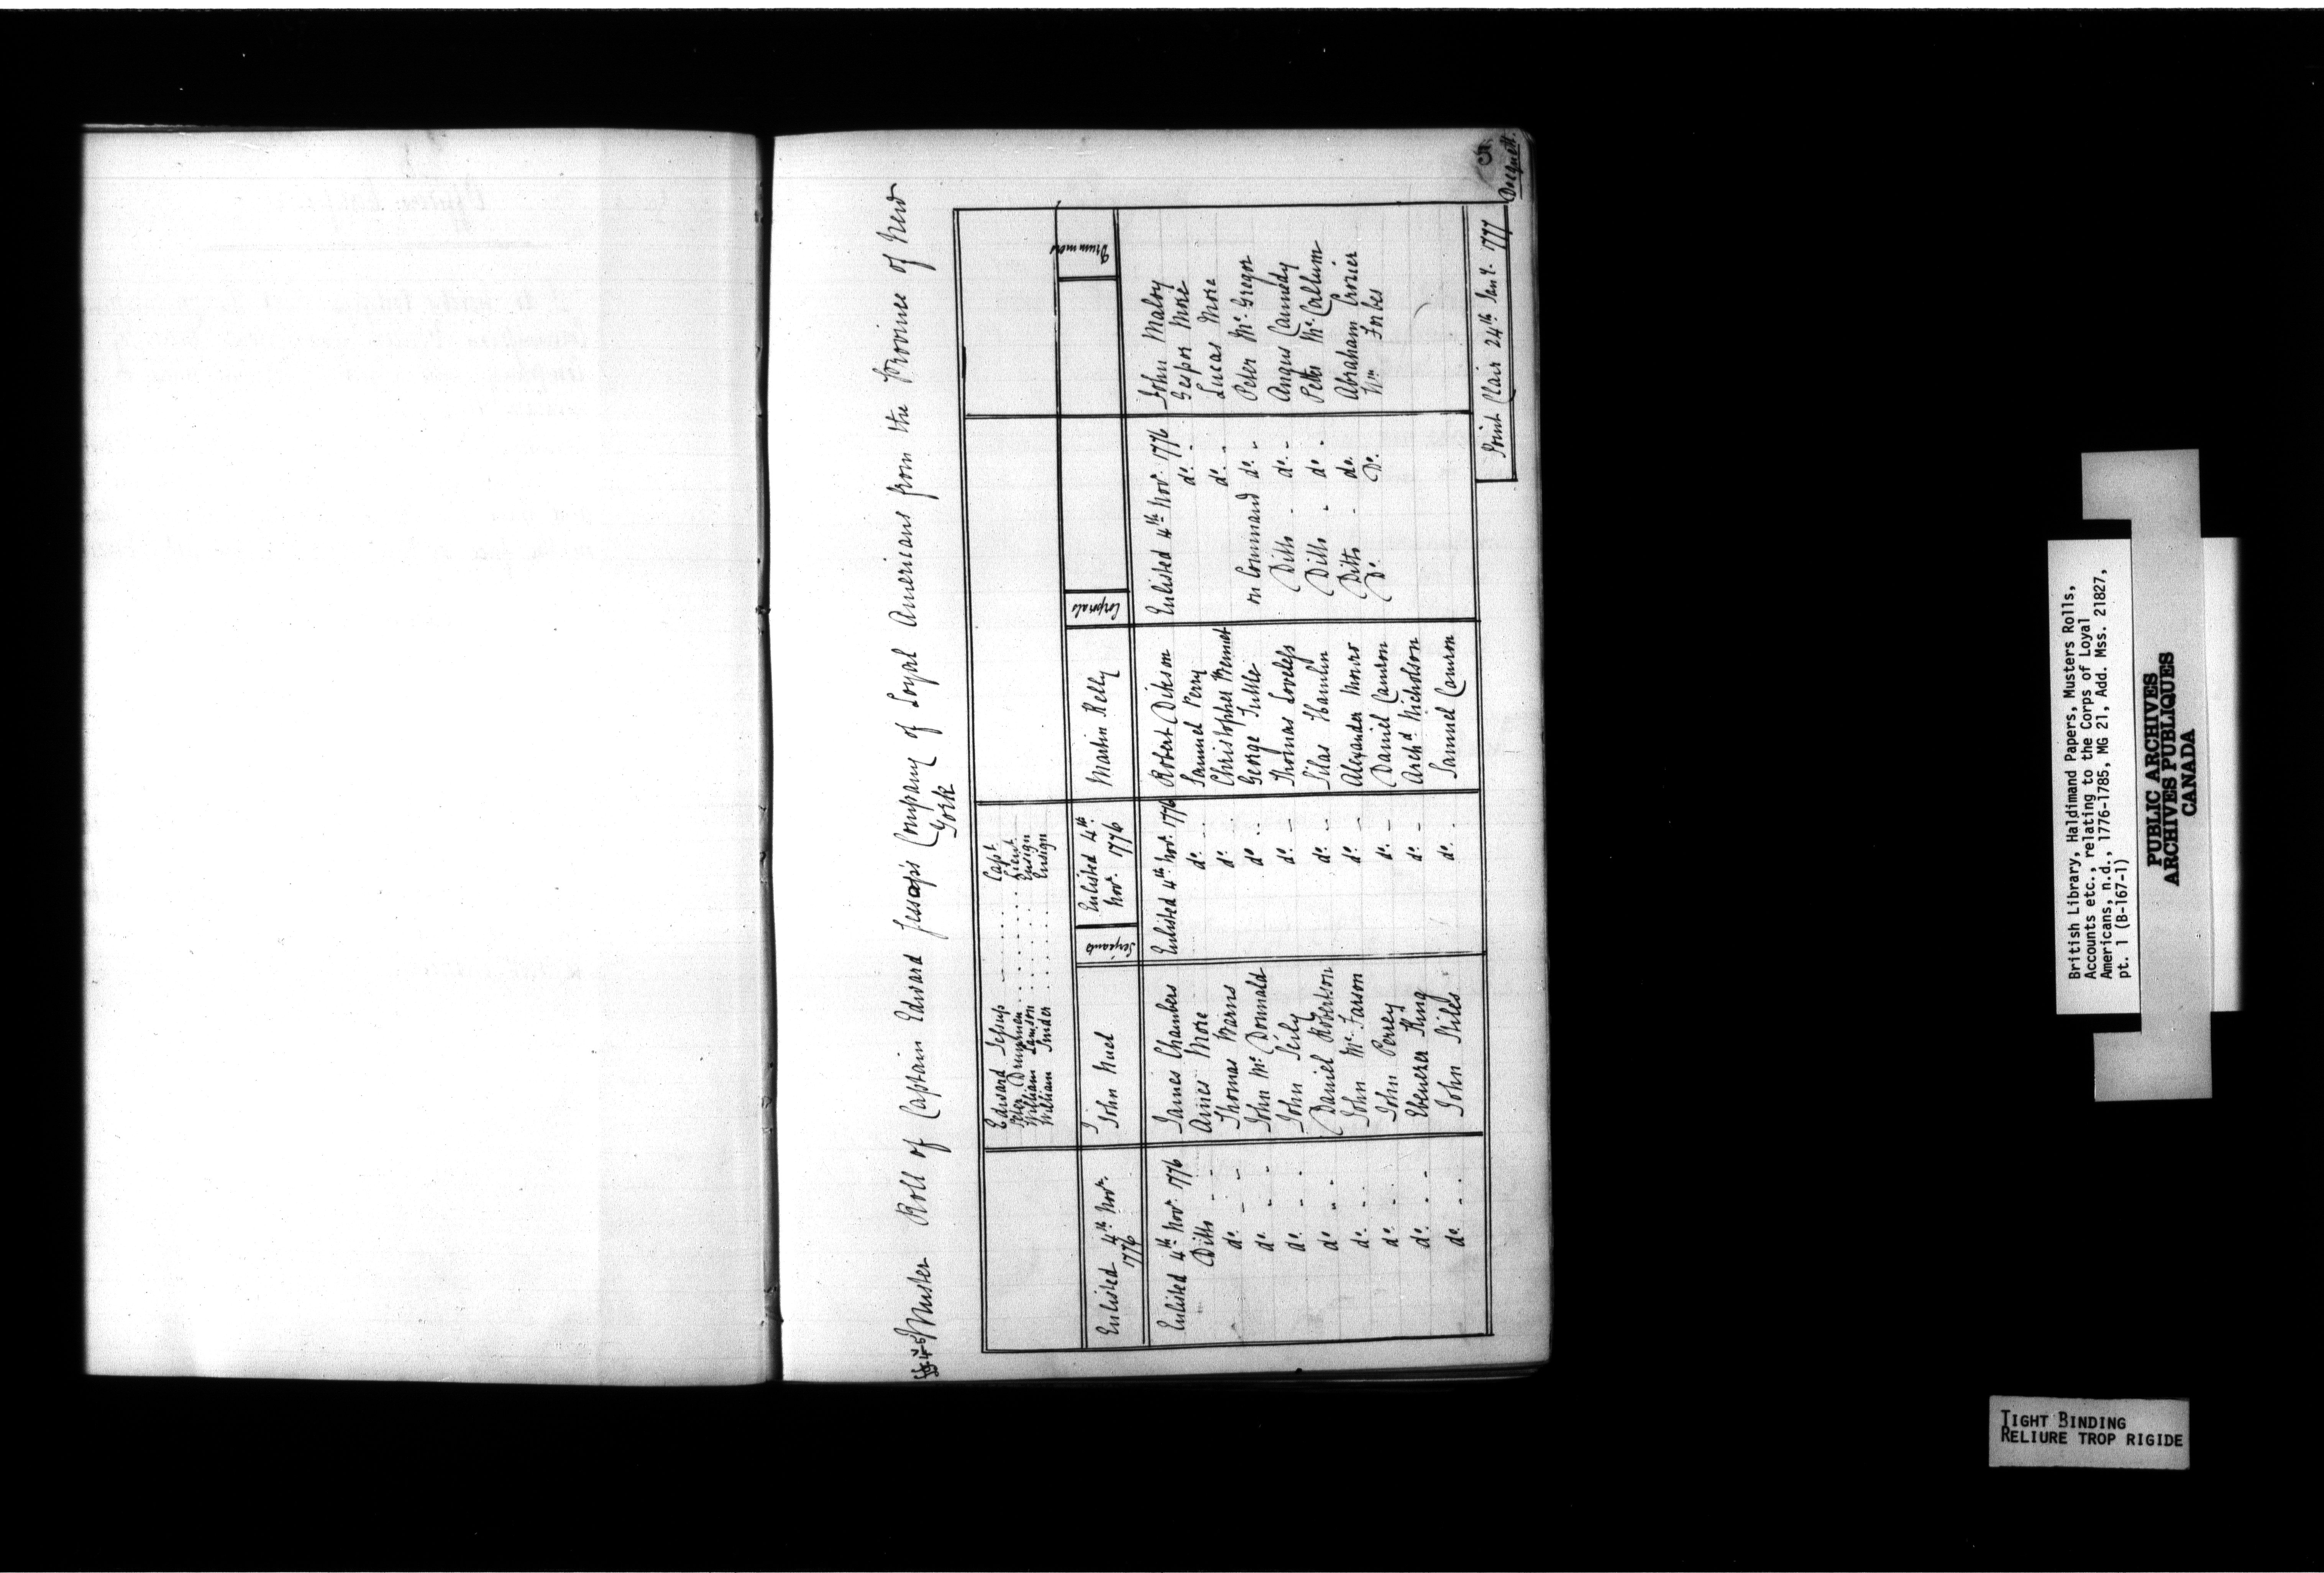 Muster Roll of Captain Edward Jessup's Company of Loyal Americans from the Province of New
York
Edward Jessup - - - - Capt.
Peter Drummen . . . . . Lieut.
William Lamson . . . . . Ensign
William Snider . . . . . Ensign
Enlisted 4th Novr. 1776 John Nuel Serjeants Enlisted 4th Novr. 1776 Martin Kelly Corporals Drummers
Enlisted 4th Novr. 1776 James Chambers Enlisted 4th Novr. 1776 Robert Dixson Enlisted 4th Novr. 1776 John Maloy
Ditto - - Ames More do. - Samuel Perry do. - Gespor More
do. - - Thomas Barns do. - Christopher Bennet do. - Lucas More
do. - - John Mc. Donnald do. - George Tuttle on Command do. - Peter Mc. Gregor
do. - - John Seily do. - Thomas Loveless Ditto - do. - Angus Cannedy
do. - - Daniel Robertson do. - Silas Hamlin Ditto - do. - Peter Mc. Callum
do. - - John Mc. Farson do. - Alexander Monro Ditto - do. Abraham Crozier
do. - - John Perrey do. - Daniel Camron Do. Do. Wm. Forbes
do. - - Ebenezer King do. - Archd. Nicholson
do. - - John Stiles do. Samuel Camron
Point Clair 24th Jany. 1777
British Library, Haldimand Papers, Musters Rolls,
Accounts etc., relating to the Corps of Loyal
Americans, n.d., 1776-1785, MG 21, Add. Mss. 21827,
pt. 1 (B-167-1)
PUBLIC ARCHIVES
ARCHIVES PUBLIQUES
CANADA
TIGHT BINDING
RELIURE TROP RIGIDE